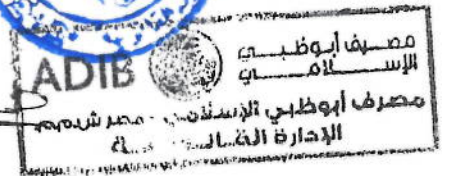 ADIB
مصرف أبوظبي
الإسلامي
مصرف أبوظبي الإسلامي - مصر ش.م.م
الإدارة